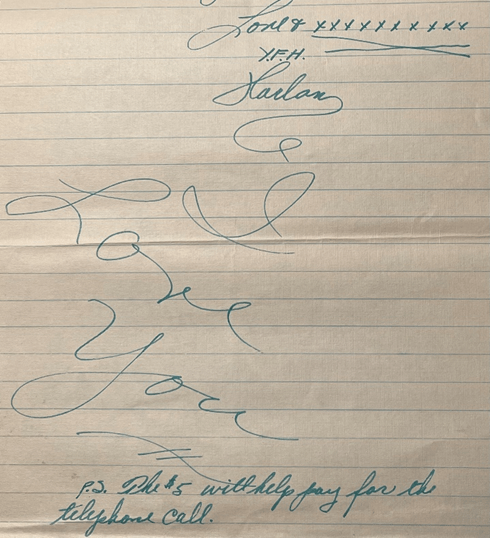 Love & xxxxxxxxxx
Y.F.H.
Harlan
I
Love
You
P.S. The $5 will help pay for the
telephone call.